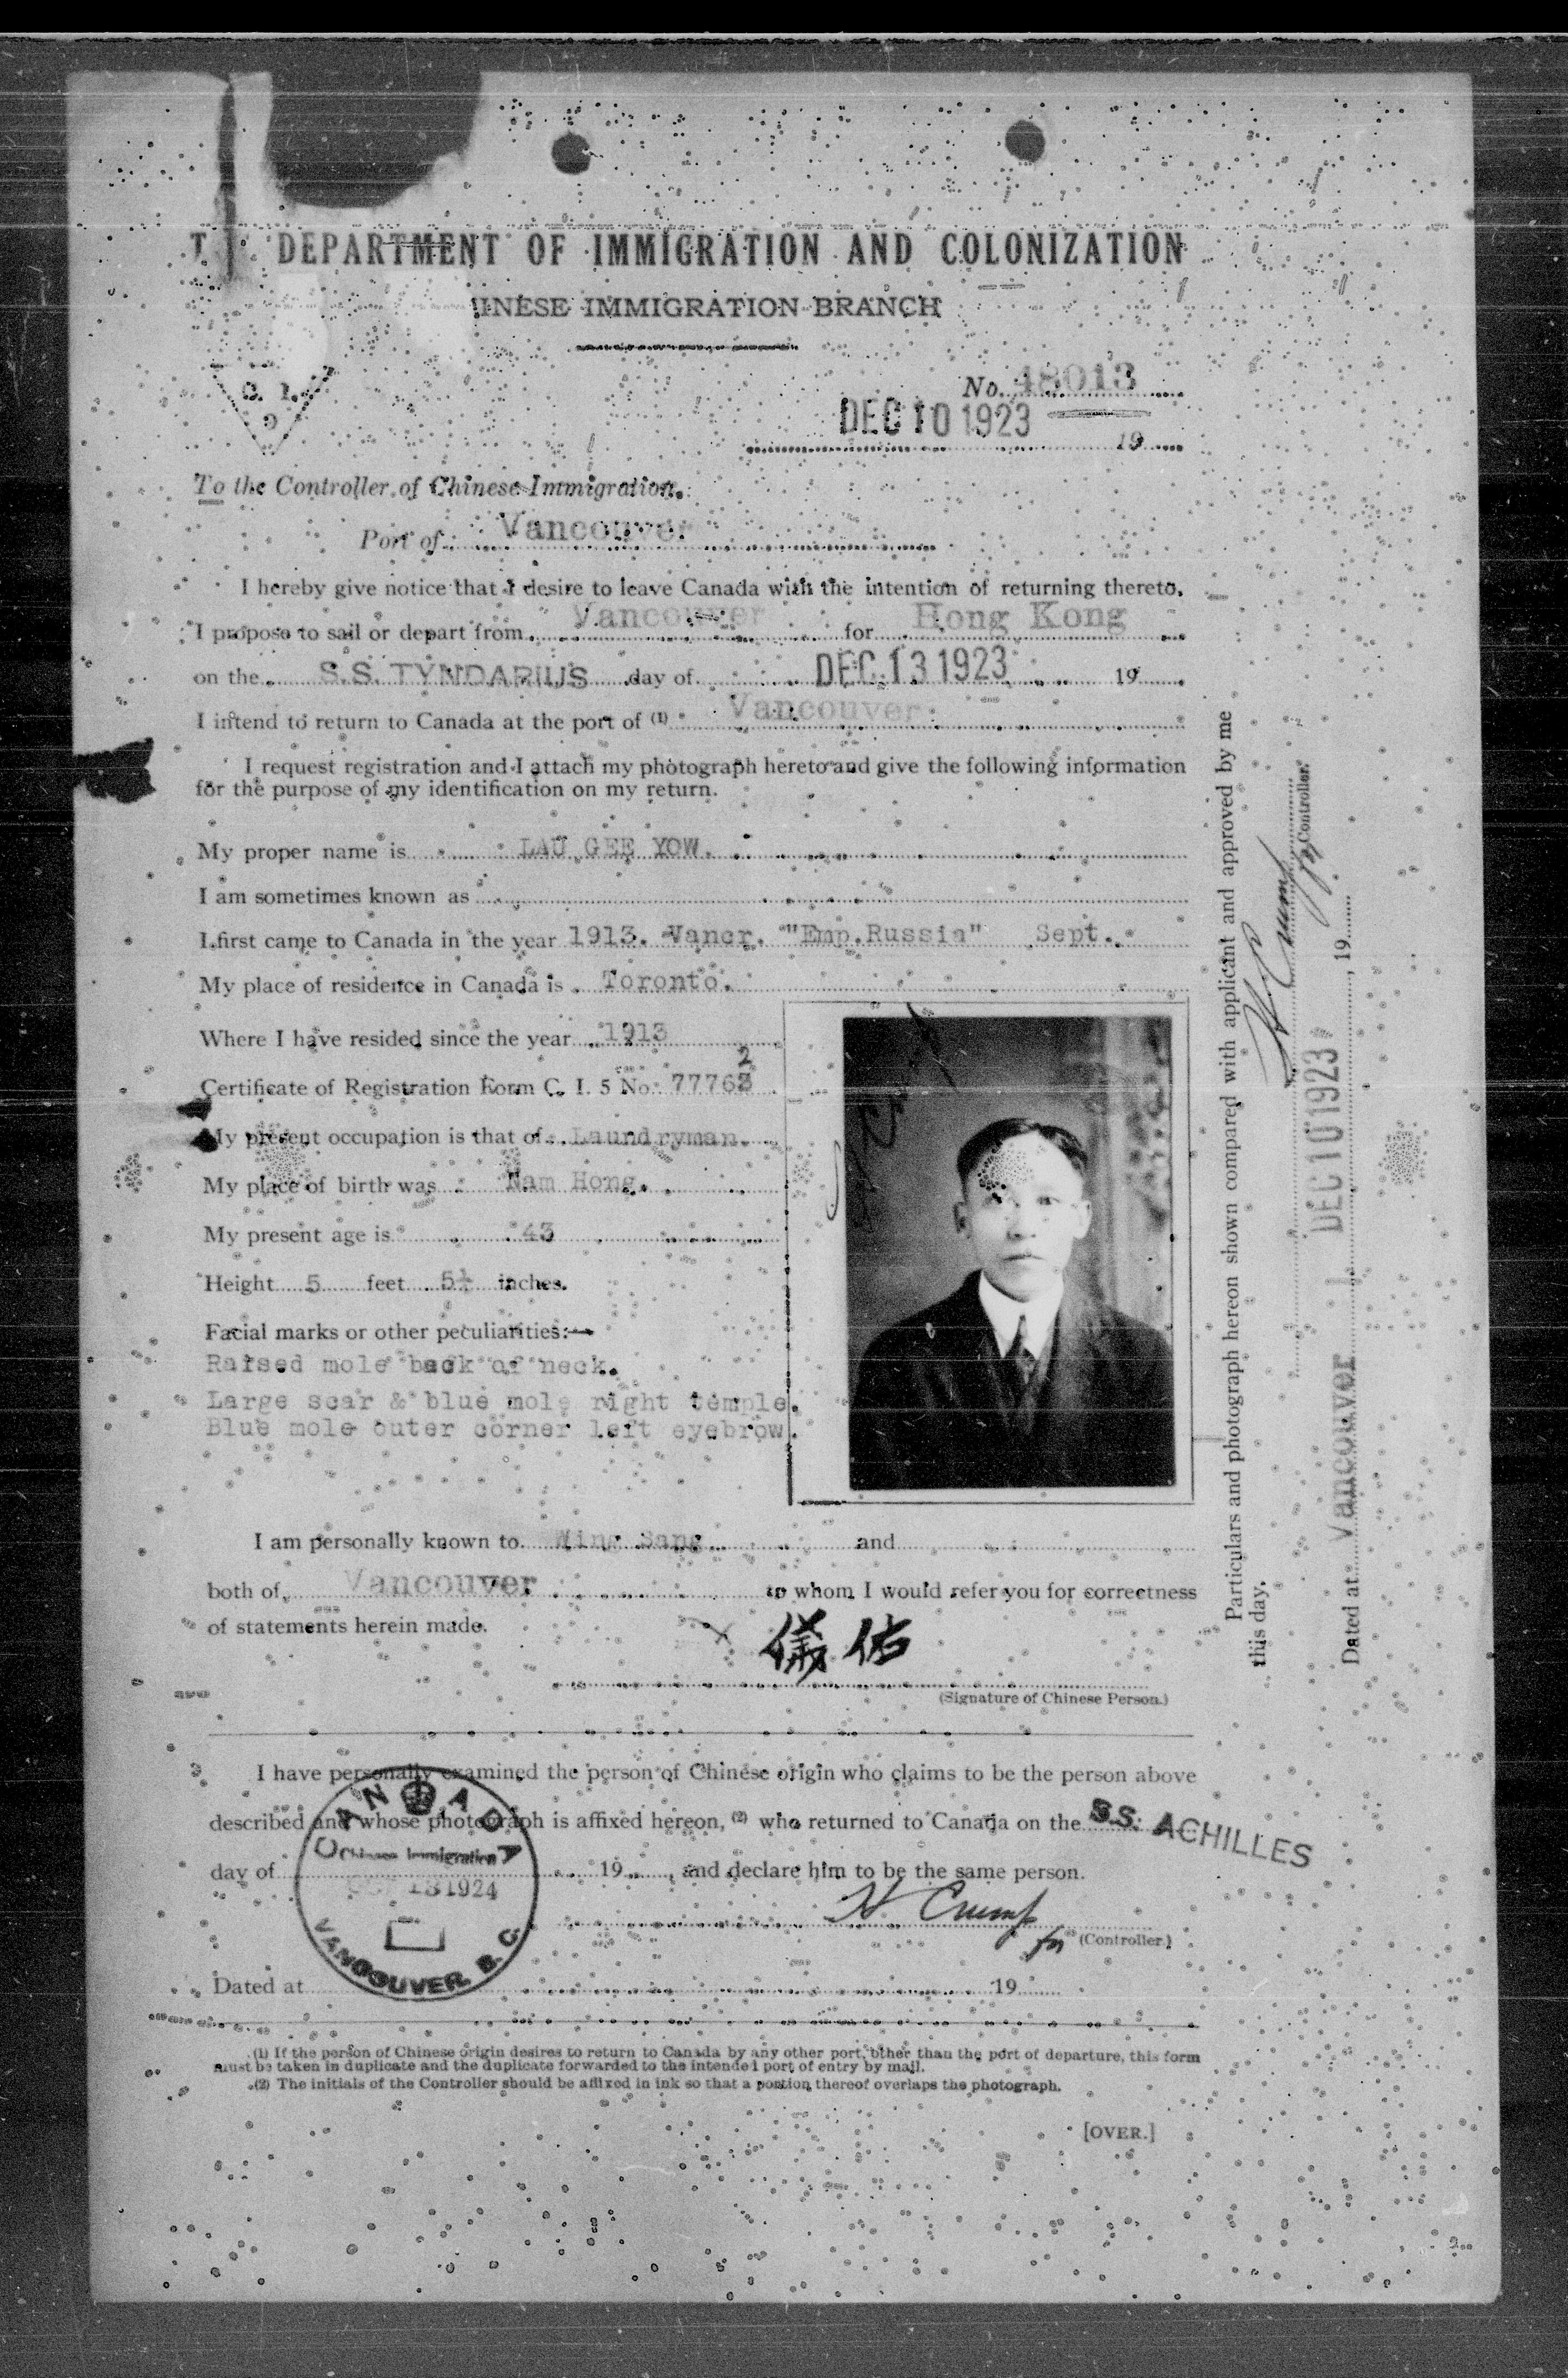 T DEPARTMENT OF IMMIGRATION AND COLONIZATION
INESE IMMIGRATION BRANCH
C. I.
9
No. 48013
DEC 10 1923 19
To the Controller of Chinese Immigration.
Port of Vancouver
I hereby give notice that I desire to leave Canada with the intention of returning thereto.
I propose to sail or depart from Vancouver for Hong Kong
on the S.S. TYNDARIUS day of DEC 13 1923 19
I intend to return to Canada at the port of (1) Vancouver
I request registration and I attach my photograph hereto and give the following information
for the purpose of my identification on my return.
My proper name is LAU GEE YOW.
I am sometimes known as
I first came to Canada in the year 1913. Vancr. "Emp.Russia" Sept.
My place of residence in Canada is Toronto.
Where I have resided since the year 1913
2
Certificate of Registration Form C. I. 5 No. 77763
My present occupation is that of Laundryman.
My place of birth was Nam Hong.
My present age is 43
Height 5 feet 5½ inches.
Facial marks or other peculiarities:—
Raised mole back of neck.
Large scar & blue mole right temple.
Blue mole outer corner left eyebrow.
I am personally known to Wing Sang and
both of Vancouver to whom I would refer you for correctness
of statements herein made.
儀佑
(Signature of Chinese Person.)
I have personally examined the person of Chinese origin who claims to be the person above
described and whose photograph is affixed hereon, (2) who returned to Canada on the S.S. ACHILLES
day of 19 , and declare him to be the same person.
H Crump
for (Controller.)
Dated at 19
CANADA
Chinese Immigration
13 1924
VANCOUVER. B. C.
(1) If the person of Chinese origin desires to return to Canada by any other port, other than the port of departure, this form
must be taken in duplicate and the duplicate forwarded to the intended port of entry by mail.
(2) The initials of the Controller should be affixed in ink so that a portion thereof overlaps the photograph.
[OVER.]
Particulars and photograph hereon shown compared with applicant and approved by me
this day.
H Crump
for Controller.
Dated at Vancouver DEC 10 1923 , 19